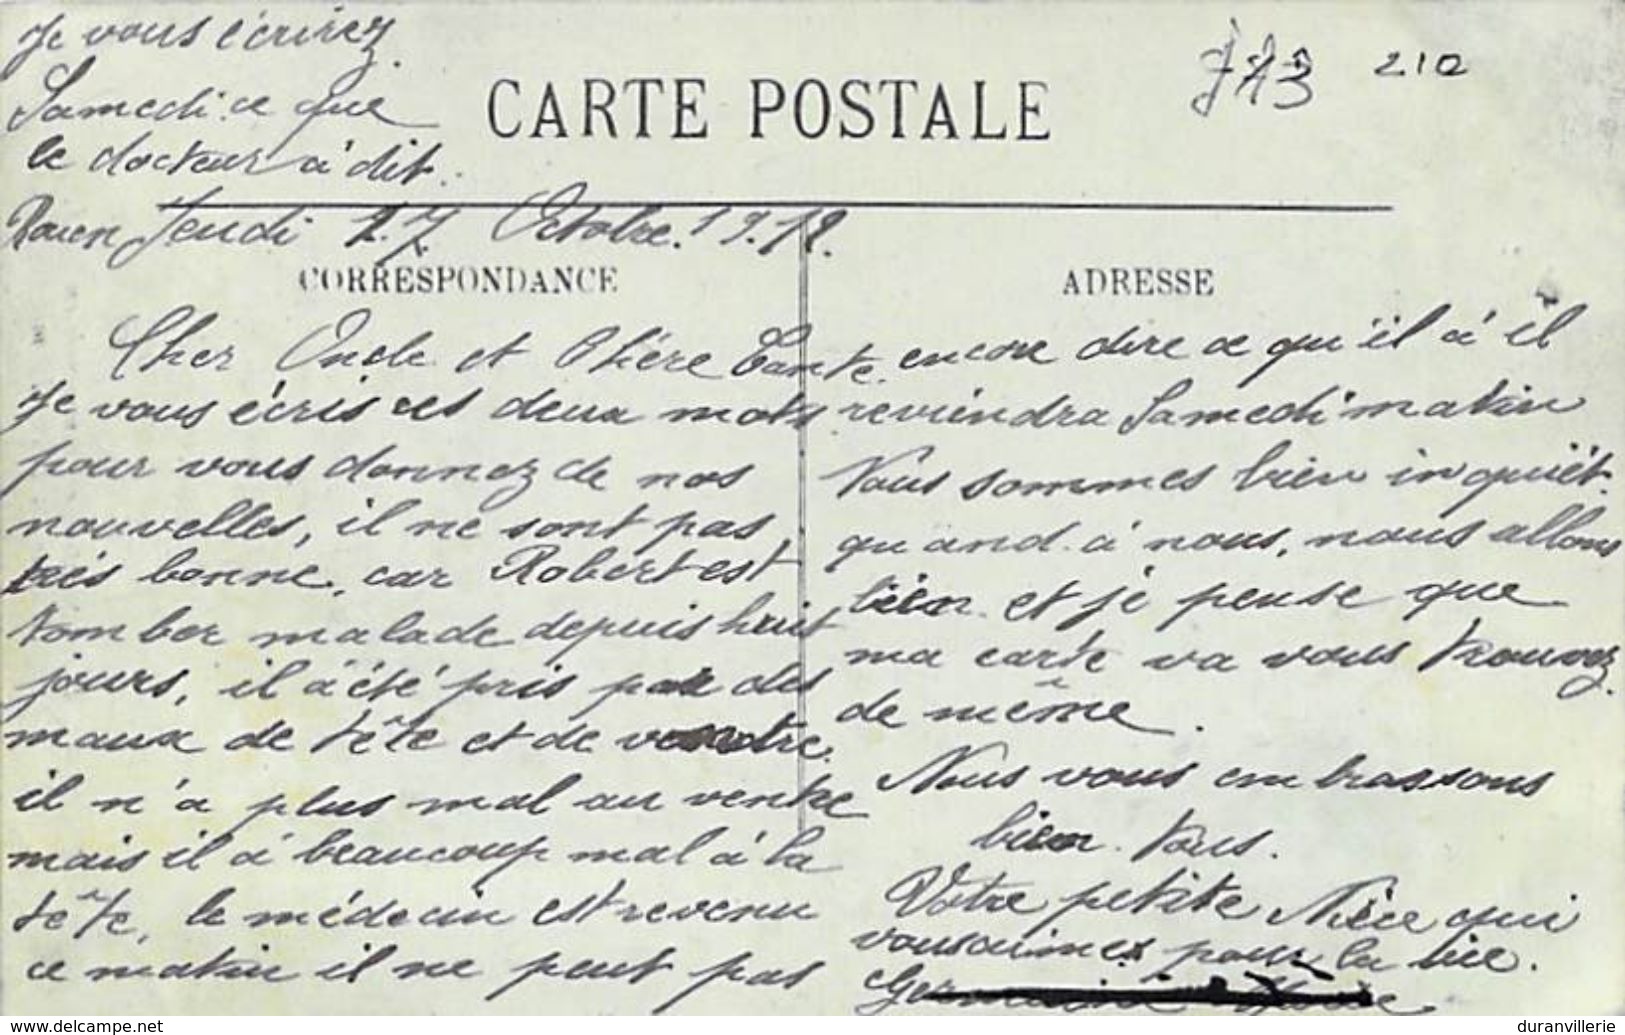 Je vous écrirez
Samedi ce que
le docteur à dit.
CARTE POSTALE
210
Rouen Jeudi 17 Octobre 1918.
CORRESPONDANCE
Cher Oncle et Chère Tante
Je vous écris ces deux mots
pour vous donnez de nos
nouvelles, il ne sont pas
très bonne, car Robert est
tomber malade depuis huit
jours, il à été pris par des
maux de tête et de ventre
il n'a plus mal au ventre
mais il à beaucoup mal à la
tête, le médecin est revenu
ce matin il ne peut pas
ADRESSE
encore dire ce qu'il à il
reviendra Samedi matin
Nous sommes bien inquièt.
quand à nous, nous allons
bien et je pense que
ma carte va vous trouvez
de même.
Nous vous embrassons
bien Tous.
Votre petite Nièce qui
vous aimes pour la vie.
duranvillerie
www.delcampe.net